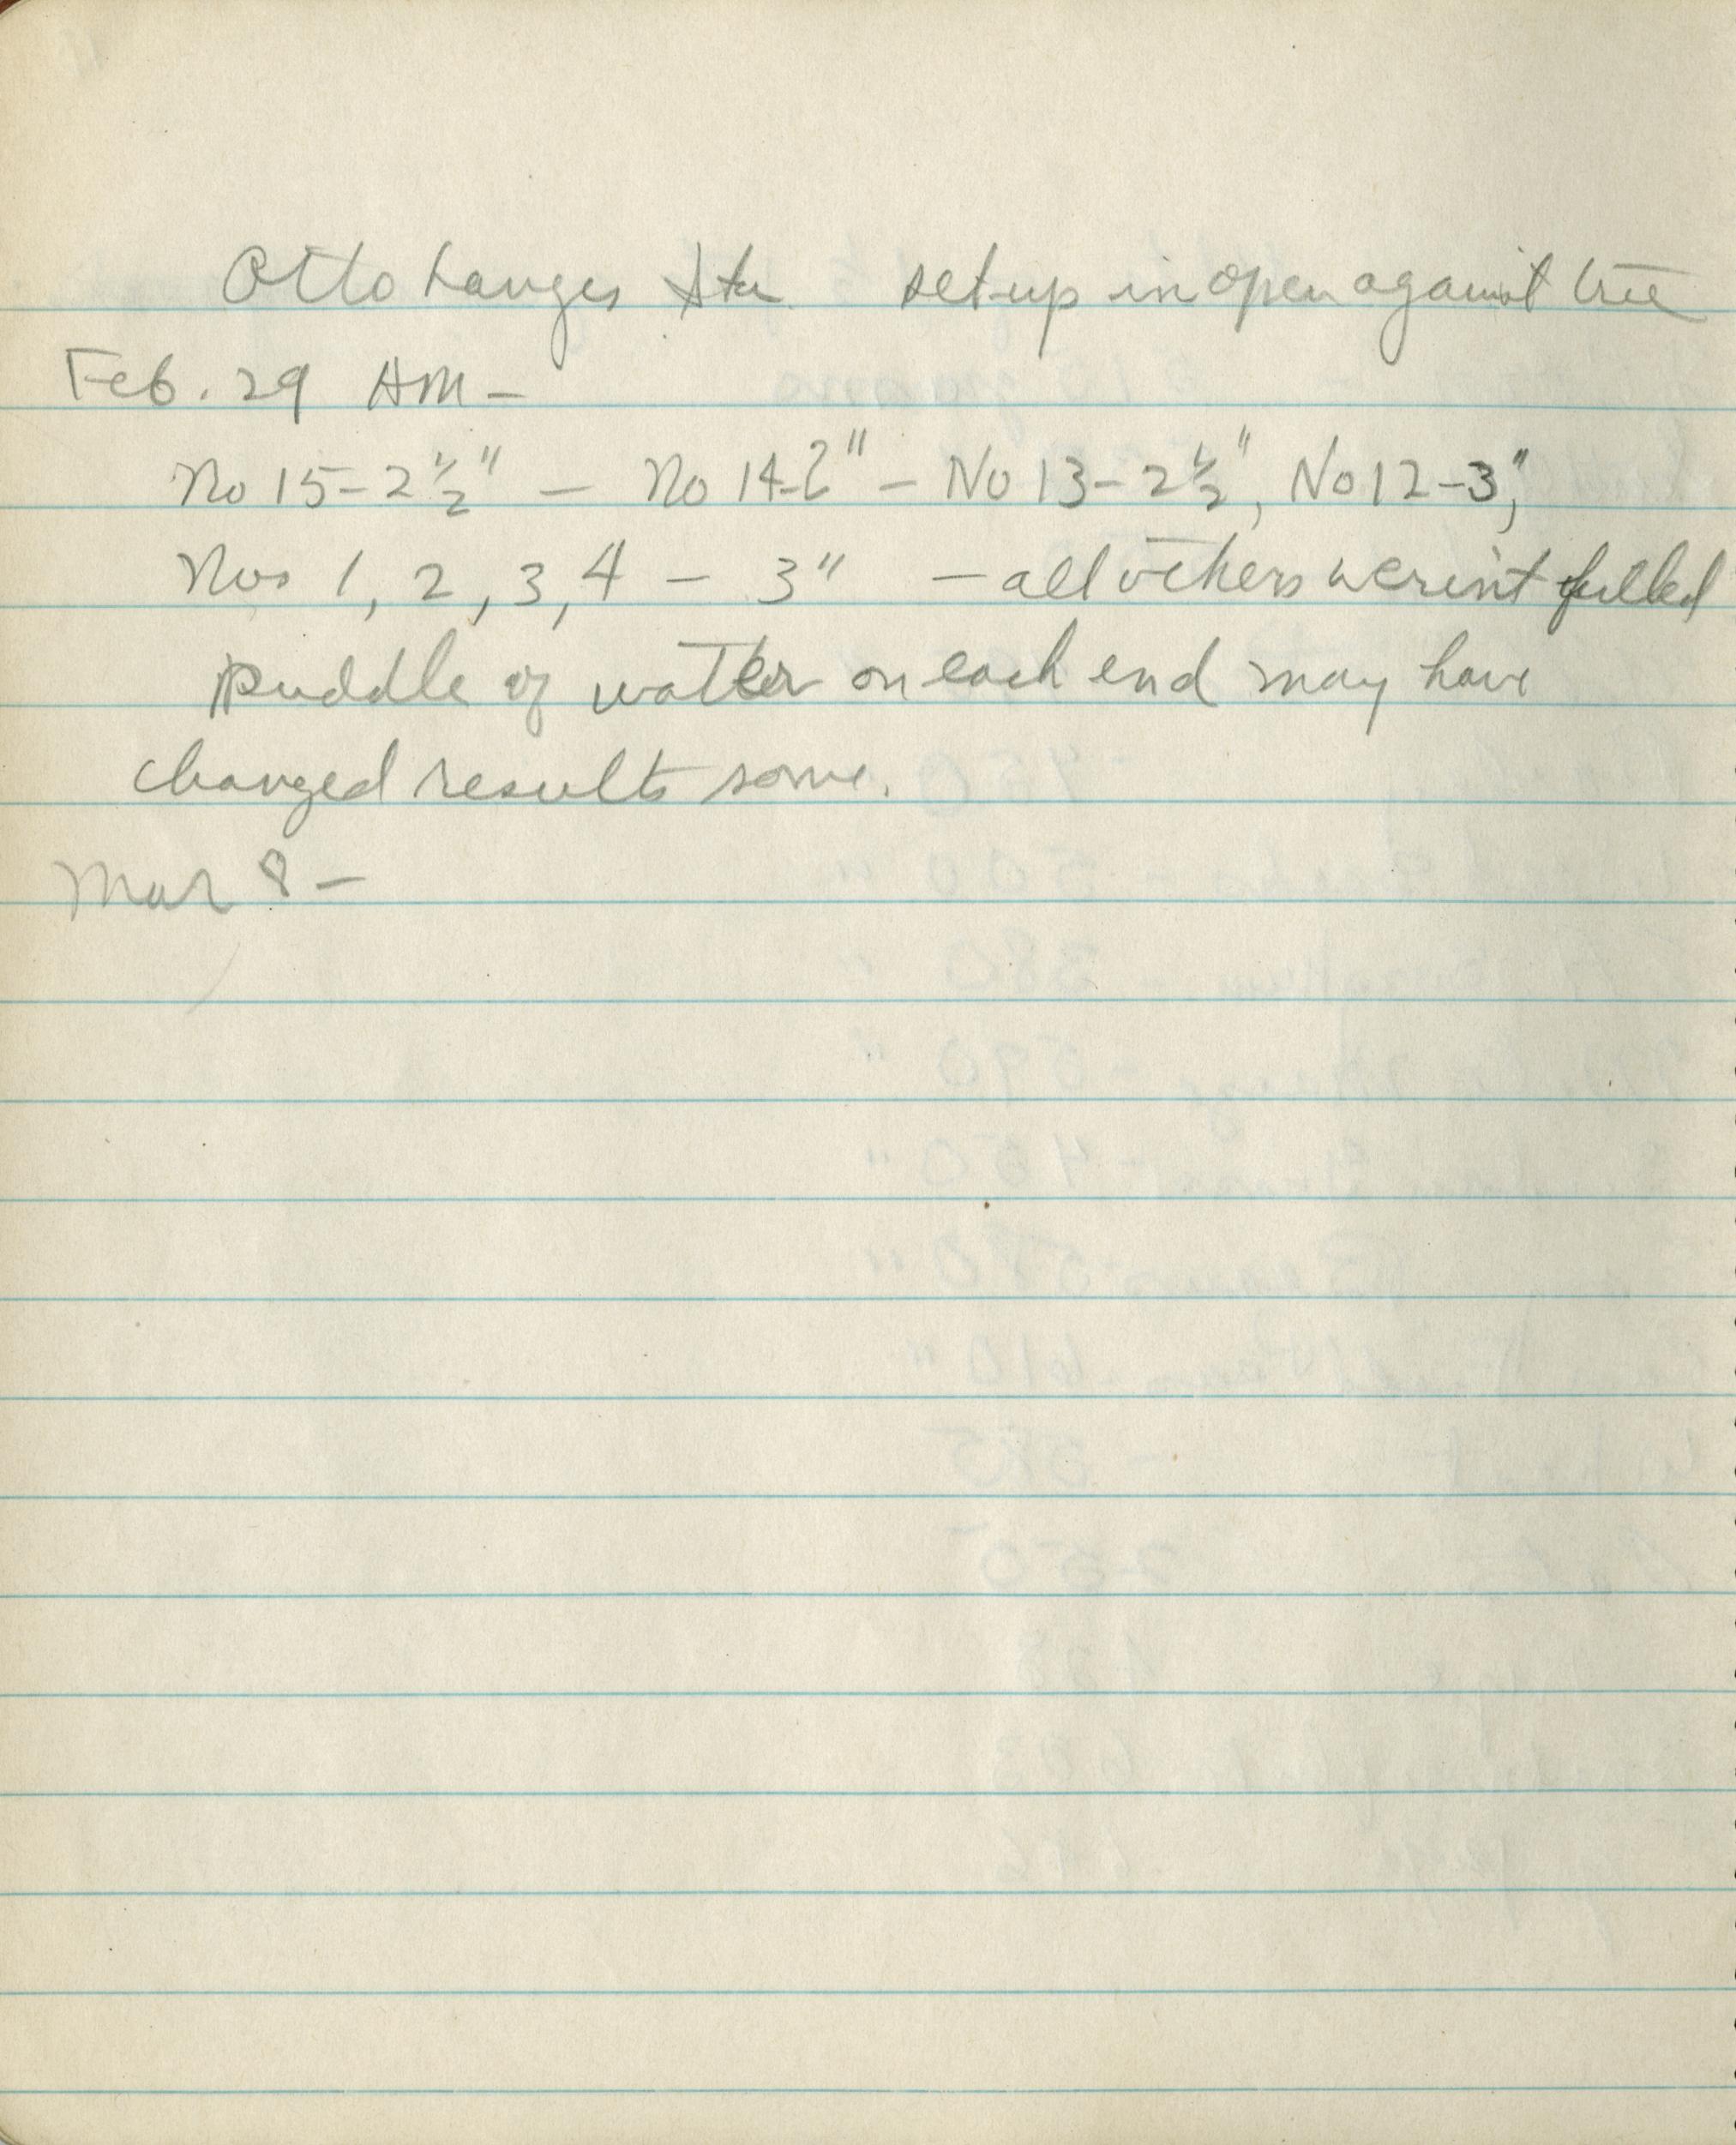 Otto Langes Sta. set-up in open against tree
Feb. 29 AM -
No 15 - 2 1/2" - No 14 - 2" - No 13 - 2 1/2", No 12 - 3",
Nos 1, 2, 3, 4 - 3" - all others weren't pulled
puddle of water on each end may have
changed results some.
Mar 8 -